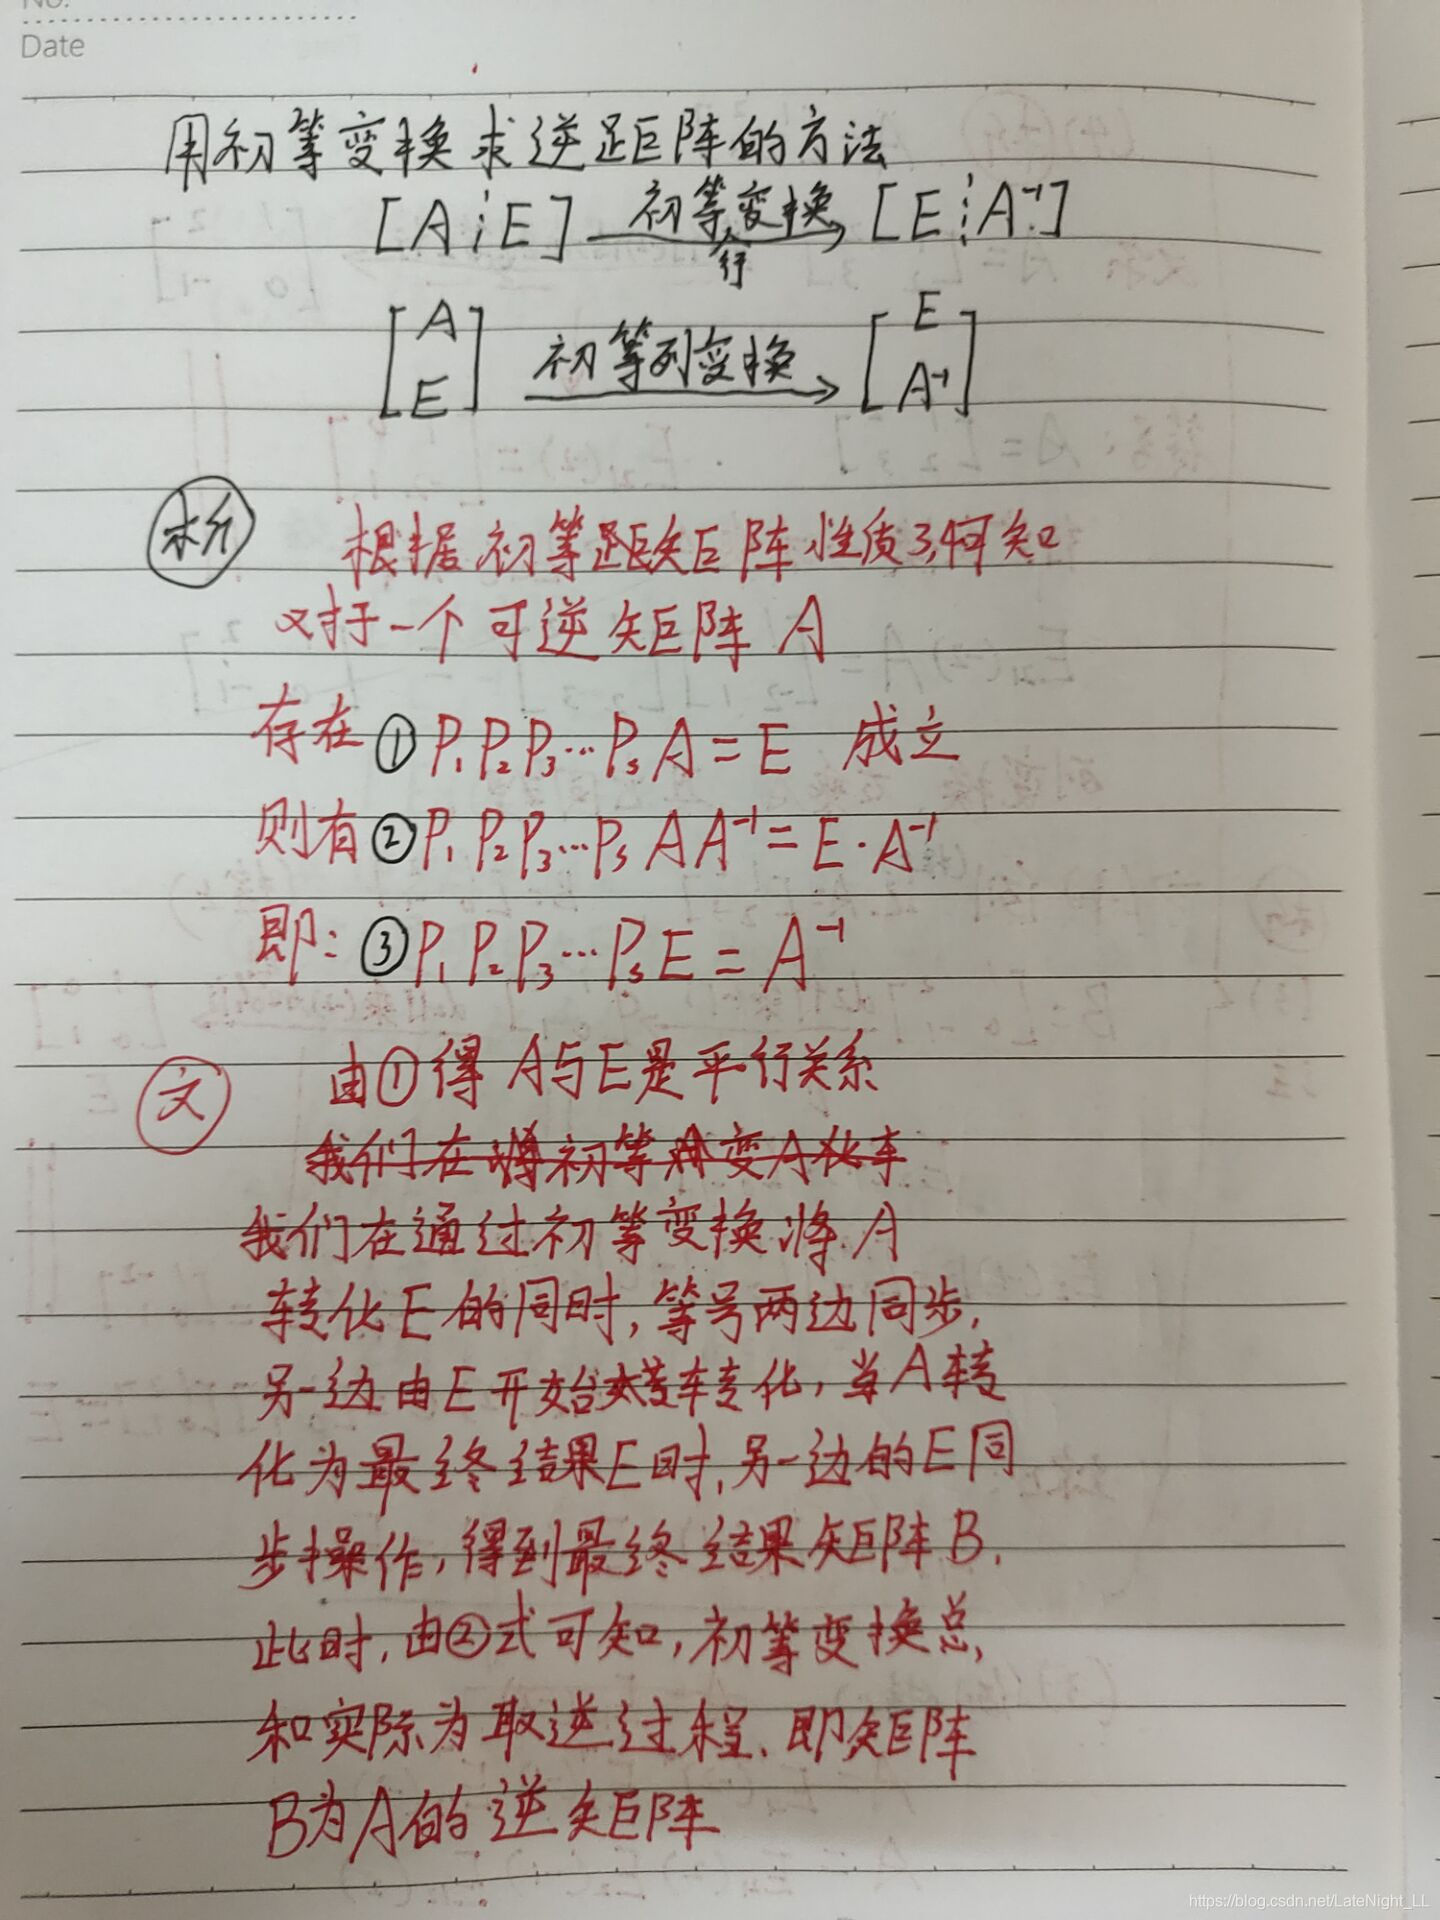 No.
Date
用初等变换求逆距阵的方法
[A⋮E] 初等变换 [E⋮A⁻¹]
行
[A E] 初等列变换 [E A⁻¹]
析 根据初等矩阵性质3,何知
对于一个可逆矩阵A
存在①P₁P₂P₃…PₛA=E 成立
则有②P₁P₂P₃…PₛAA⁻¹=E·A⁻¹
即:③P₁P₂P₃…PₛE=A⁻¹
文 由①得A与E是平行关系
我们在 初等 变A
我们在通过初等变换将A
转化E的同时,等号两边同步,
另一边由E开始转化,当A转
化为最终结果E时,另一边的E同
步操作,得到最终结果矩阵B.
此时,由②式可知,初等变换总,
和实际为取逆过程、即矩阵
B为A的逆矩阵
https://blog.csdn.net/LateNight_LL